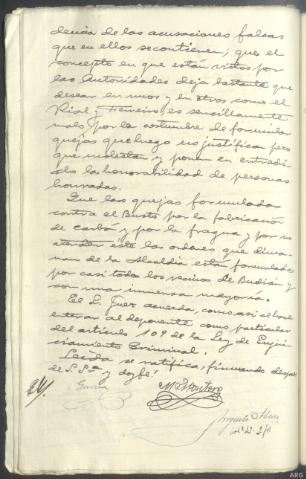 dencia de las acusaciones falsas
que en ellos se contienen; que el
concepto en que están vistos por
las Autoridades deja bastante que
desear en unos y en otros como el
Rial, es sencillamente
malo por la costumbre de formular
quejas que luego no justifica pero
que molesta y ponen en entredi-
cho la honorabilidad de personas
honradas.
Que las quejas formulada
contra el Busto por la fabricación
de carbón y por la fragua y por no
atender este las ordenes que dima-
nan de la Alcaldia están formuladas
por casi todo los vecinos de Budián y
son una inmensa mayoría.
El Sr. Juez acuerda, como así se hace
enterar al deponente como particular
del artículo 109 de la Ley de Enjui-
ciamiento Criminal.
Leida se ratifica, firmando después
de S.Sª y doyfe!